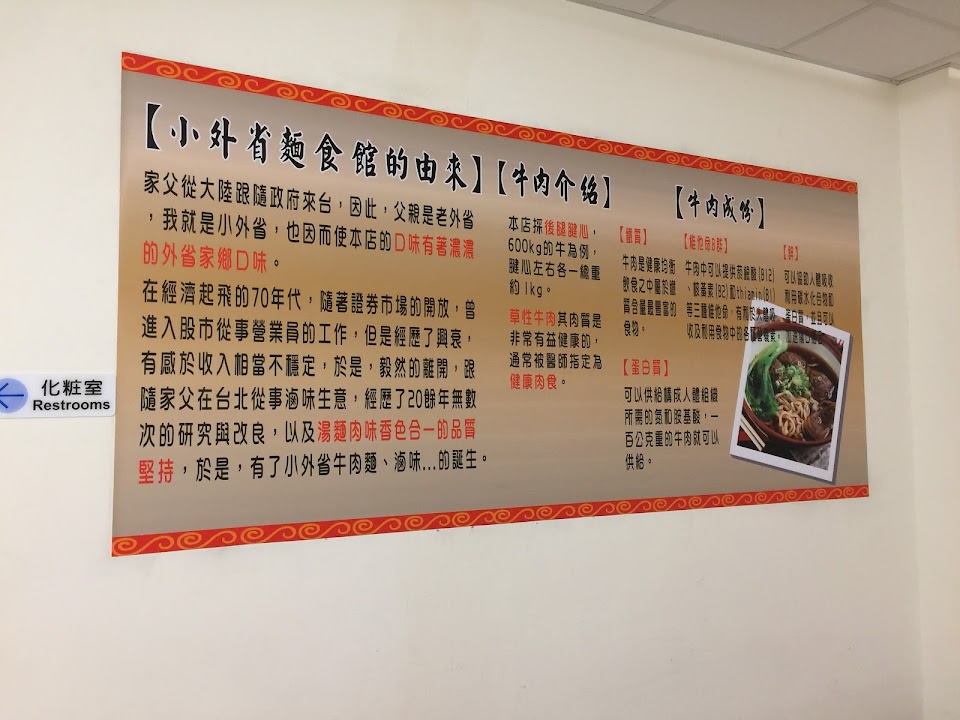 【小外省麵食館的由來】
家父從大陸跟隨政府來台，因此，父親是老外省
，我就是小外省，也因而使本店的口味有著濃濃
的外省家鄉口味。
在經濟起飛的70年代，隨著證券市場的開放，曾
進入股市從事營業員的工作，但是經歷了興衰，
有感於收入相當不穩定，於是，毅然的離開，跟
隨家父在台北從事滷味生意，經歷了20餘年無數
次的研究與改良，以及湯麵肉味香色合一的品質
堅持，於是，有了小外省牛肉麵、滷味...的誕生。
【牛肉介紹】
本店採後腿腱心，
600kg的牛為例，
腱心左右各一總重
約1kg。
草性牛肉其肉質是
非常有益健康的，
通常被醫師指定為
健康肉食。
【牛肉成份】
【鐵質】
牛肉是健康均衡
飲食之中屬於鐵
質含量最豐富的
食物。
【維他命B群】
牛肉中可以提供菸鹼酸(B12)
、核黃素(B2)和thiamin(B1)
等三種維他命，有利於人體吸
收及利用食物中的各種營養素。
【鋅】
可以協助人體吸收
利用碳水化合物和
蛋白質，並且可以
【蛋白質】
可以供給構成人體組織
所需的氮和胺基酸，一
百公克重的牛肉就可以
供給。
化粧室
Restrooms